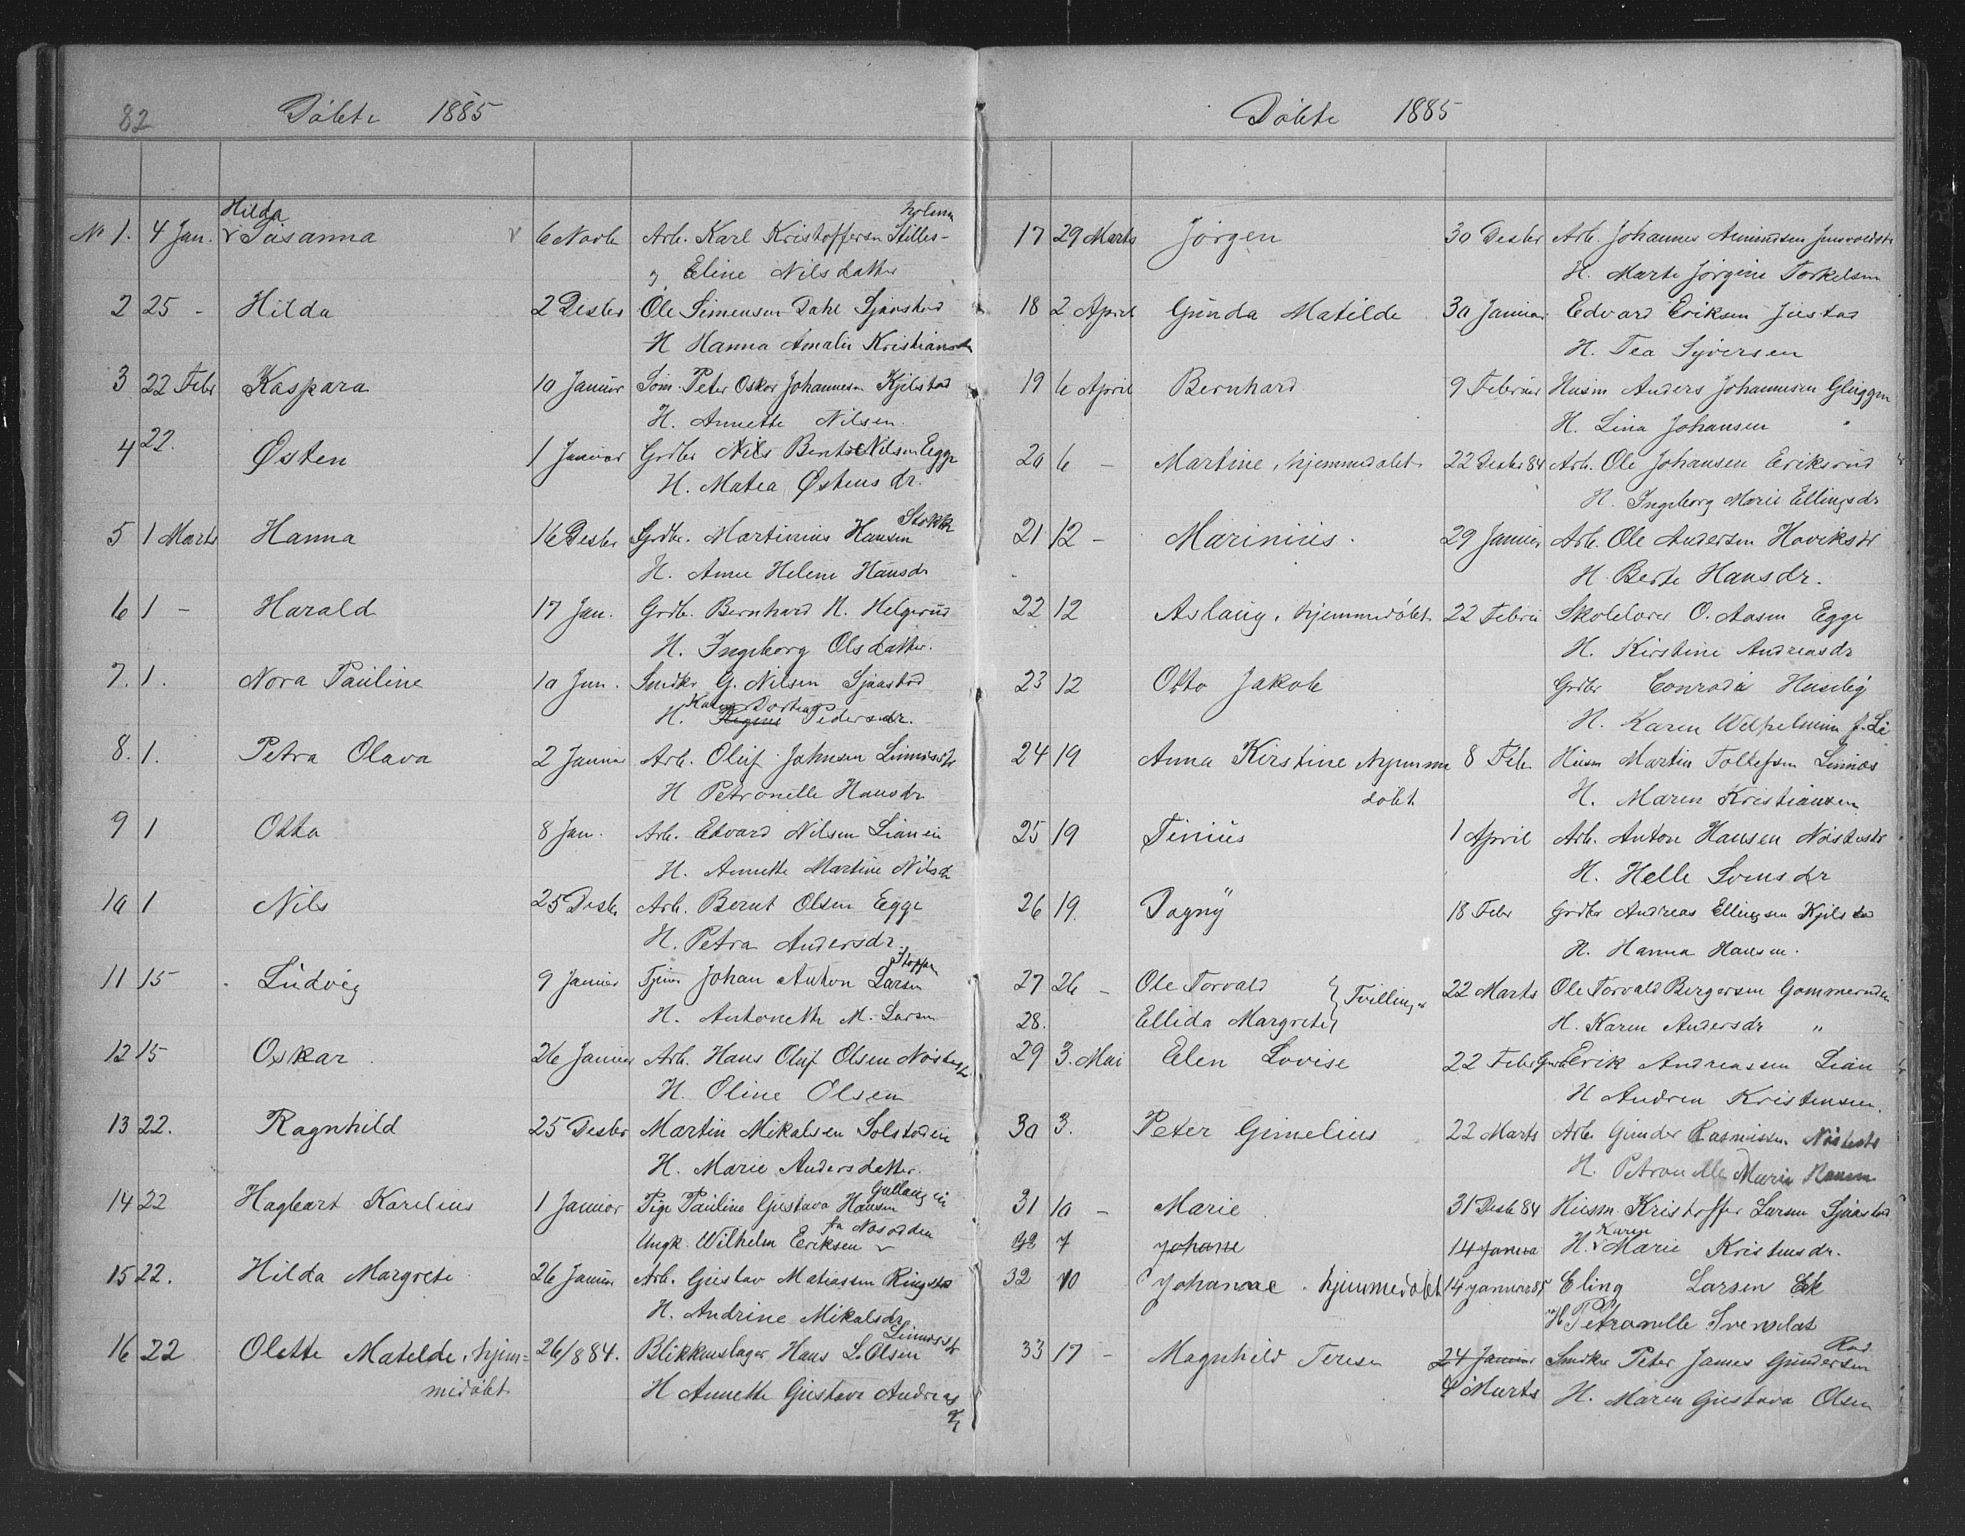 82 Döbte 1885
Hilda holmen
No 1. 4 Jan. Susanna 6 Novb Arb. Karl Kristoffersen Stilles-
Eline Nilsdatter
2 25 - Hilda 2 Desbr Ole Simensen Dahl Sjaastad
H Hanna Amalie Kristiansdr
3 22 Febr Kaspara 10 Januar Søm. Peter Oskar Johannesen Kjilstad
H. Annette Nilsen.
4 22. Østen 1 Januar Grdbr Nils Berntsen Egge
H. Matea Østensdr.
Stokke
5 1 Marts Hanna 16 Desbr Grdbr. Martinius Hansen
H. Anne Helene Hansdr
6 1 - Harald 17 Jan. Grdb. Bernhard N. Helgerud
H. Ingeborg Olsdatter.
7. 1. Nora Pauline 10 Jan. Smdkr G. Nilsen Sjaastad
Karen Dortea
H. Regine Pedersdr.
8. 1. Petra Olava 2 Januar Arb. Oluf Johnsen Linnesstr
H Petronelle Hansdr
9 1 Otto 8 Jan. Arb. Edvard Nilsen Lianein
H. Annette Martine Nilsdr
10 1 Nils 25 Desbr Arb. Bernt Olsen Egge
H. Petra Andersdr.
Stoppen
11 15 - Ludvig 9 Januar Tjen. Johan Anton Larsen
H. Antonette M. Larsen
12 15 Oskar 26 Januar Arb. Hans Oluf Olsen Nøstestr.
H. Oline Olsen
13 22. Ragnhild 25 Desbr Martin Mikalsen Solstadein
H. Marie Andersdatter.
Gullaug ein
14 22 Hagbart Karelius 1 Januar Pige Pauline Gustava Hansen
fra Nosodden
Ungk. Wilhelm Eriksen
15 22. Hilda Margrete 26 Januar Arb. Gustav Matiassen Ringstr
H. Andrine Mikalsdr.
Linnesstr
16 22 Olette Matelde, hjem= 26/8 84. Blikkenslager Hans L. Olsen
medöbt H Annette Gustava Andreas
Döbte 1885
17 29 Marts Jørgen 30 Desbr Arb. Johannes Amundsen Jensvoldstr
H. Marte Jørgine Torkelsen
18 2 April Gunda Matilde 30 Januar Edvard Eriksen Justad
H. Tea Syversen
19 6 April Bernhard 9 Februar Husm Anders Johannesen Gluggen
H. Lina Johansen
20 6 - Martine, hjemmedøbt 22 Desbr 84 Arb. Ole Johansen Eriksrud
H. Ingeborg Marie Ellingsdr
21 12 - Marinius. 29 Januar Arb. Ole Andersen Haviksstr
H. Berte Hansdr.
22 12 Aslaug, hjemmedøbt 22 Februa Skolelærer O. Aasen Egge
H. Kirstine Andreasdr
23 12 Otto Jakob Grdbr Conradi Huseby
H. Karen Welhelmine f. Li
24 19 Anna Kirstine Hjemme 8 Feb. Husm Martin Tollefsen Linnes
døbt H. Maren Kristiansen
25 19 Tinius 1 April Arb. Anton Hansen Nøstestr
H. Helle Svensdr
26 19. Dagny 18 Febr Grdbr Andreas Ellingsen Kjilstad
H. Hanna Hansen.
27 26 - Ole Torvald } Tvillinger 22 Marts Ole Torvald Bergersen Gommerud
28. Ellida Margrete H. Karen Andersdr "
29 3. Mai Elen Lovise 22 Febr Grdb Erik Andreassen Lian
H Andrea Kristensen.
30 3. Peter Gimelius 22 Marts Arb. Gunder Rasmussen Nøstestr
H. Petronelle Marie Hansen
31 10 - Marie 31 Desb 84 Husm. Kristoffer Larsen Sjaastad
Karen
32 7 Johane 14 Janua H. Marie Kristensdr.
32 10 Johanne. hjemmedøbt 14 Januar 85 Eling Larsen Ek
H Petronelle Svensdat
Rød
33 17 - Magnhild Teresa 24 Januar Smdkr Peter James Gundersen
4 Marts H. Maren Gustava Olsen